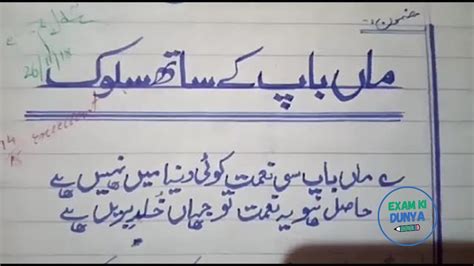 مضمون:-
26/11/18
14
15
excellent
ماں باپ کے ساتھ سلوک
؎ ماں باپ سی نعمت کوئی دنیا میں نہیں ہے
حاصل ہو یہ نعمت تو جہاں خُلدِ بریں ہے
EXAM KI
DUNYA